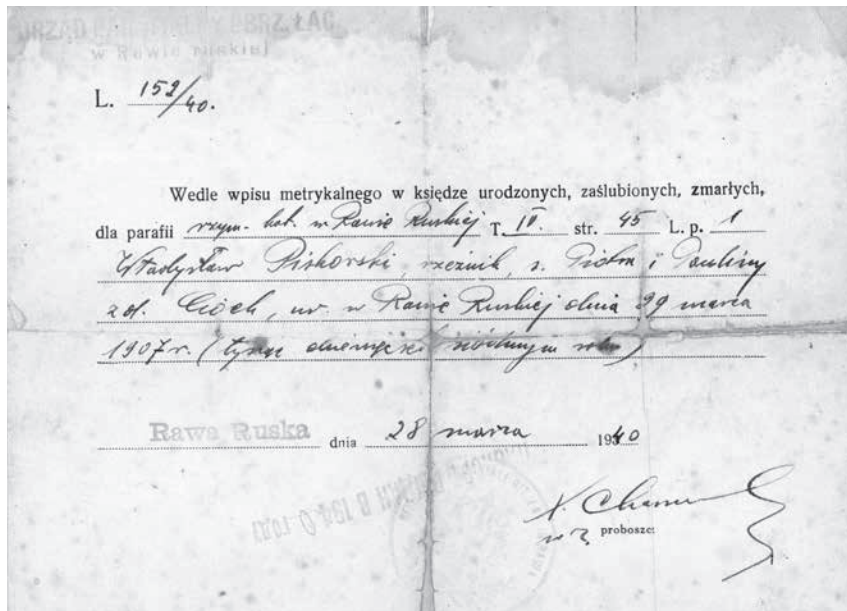 URZĄD PARAFIALNY OBRZ. ŁAC.
w Rawie ruskiej
L. 152/40.
Wedle wpisu metrykalnego w księdze urodzonych, zaślubionych, zmarłych,
dla parafii rzym. kat. w Rawie Ruskiej T. IV. str. 45 L. p. 1
Władysław Piskorski, rzeźnik, s. Piotra i Pauliny
zd. Cioch, ur. w Rawie Ruskiej dnia 29 marca
1907 r. (tysiąc dziewięćset siódmym roku)
Rawa Ruska dnia 28 marca 1940
X.
proboszcz